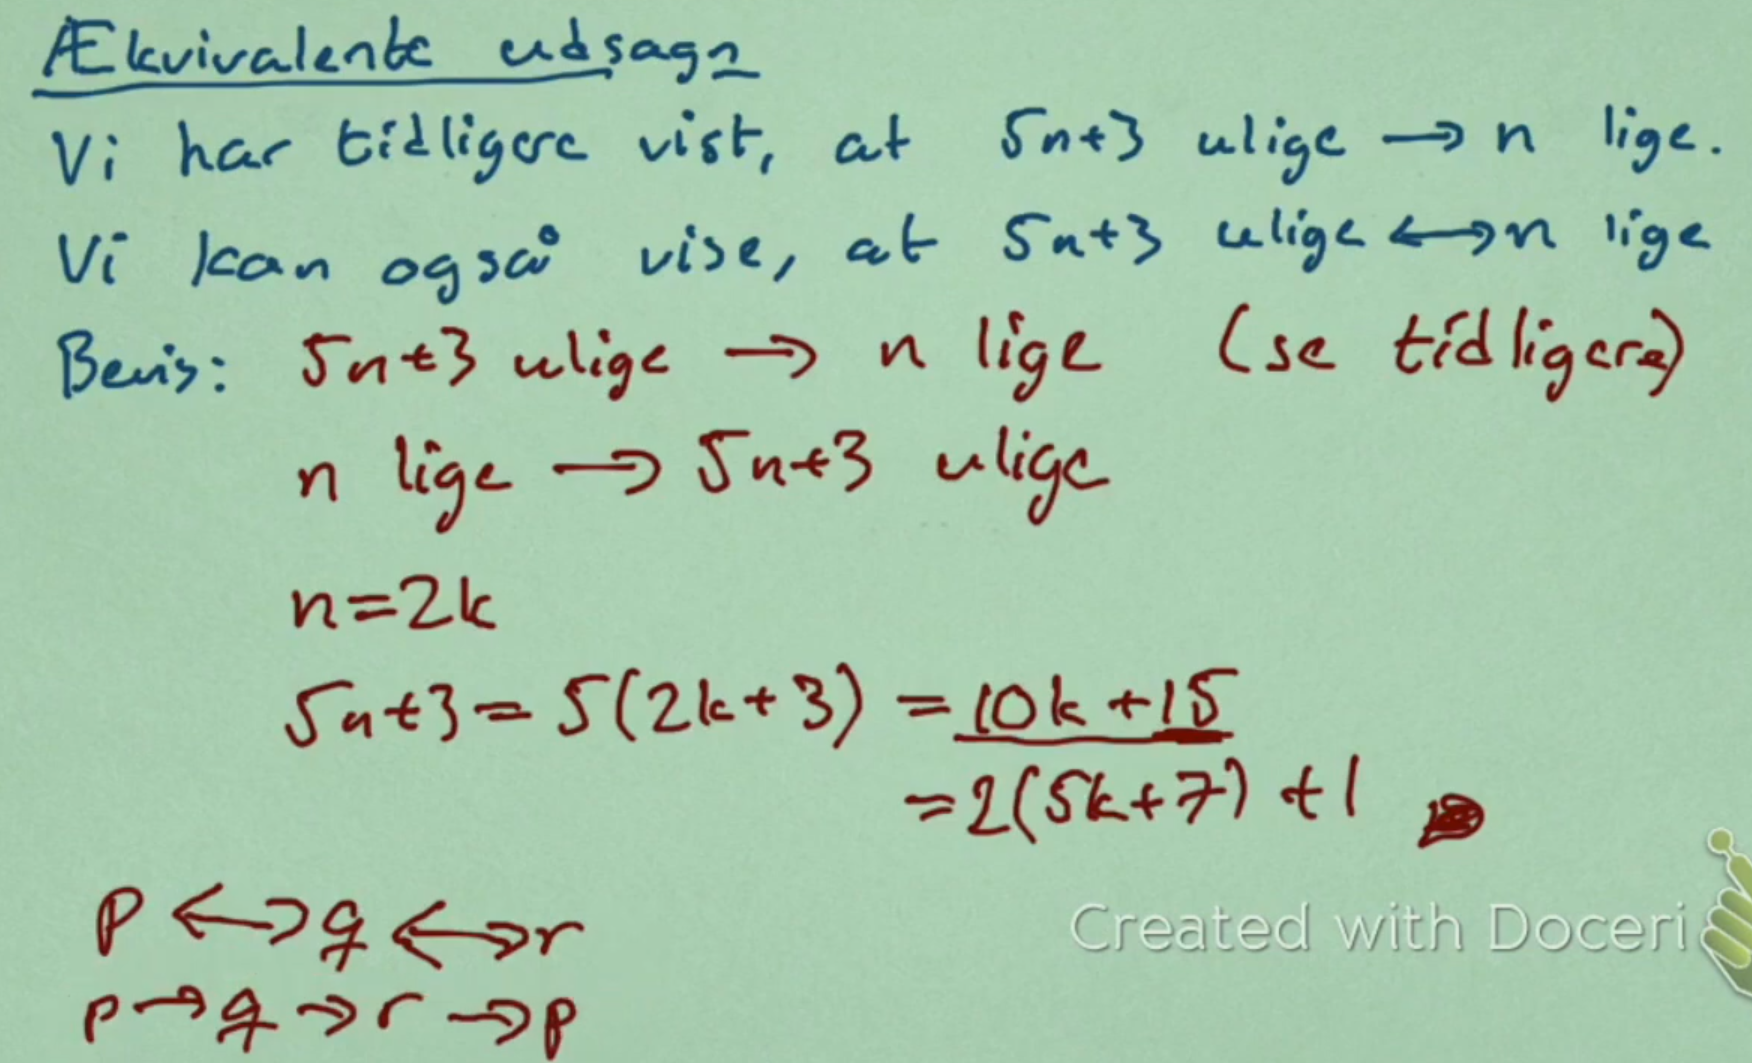 Ækvivalente udsagn
Vi har tidligere vist, at 5n+3 ulige → n lige.
Vi kan også vise, at 5n+3 ulige ↔ n lige
Bevis: 5n+3 ulige → n lige (se tidligere)
n lige → 5n+3 ulige
n=2k
5n+3 = 5(2k+3) = 10k+15
=2(5k+7)+1
p ↔ q ↔ r
p → q → r → p
Created with Doceri